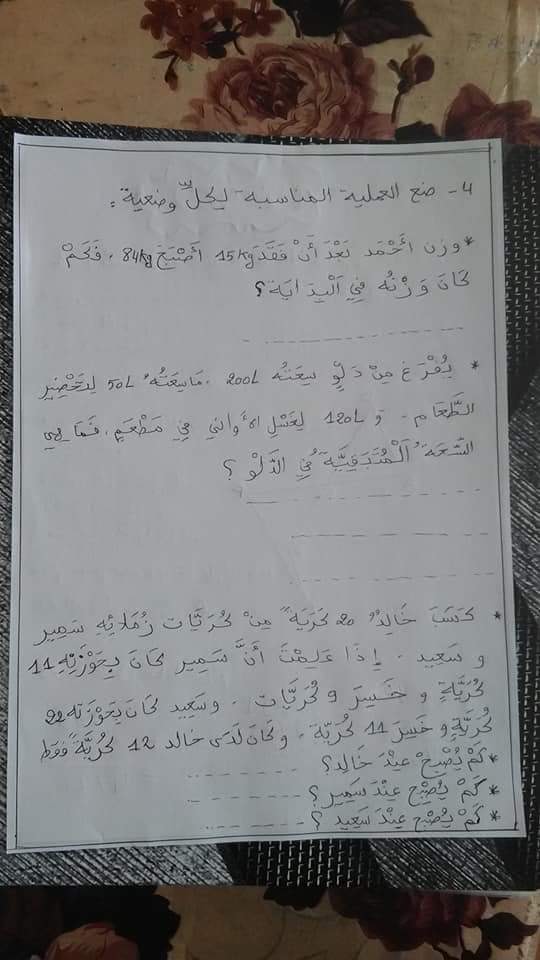 4- ضع العملية المناسبة لِكلِّ وضعية :
* وزن أَحْمَد بَعْدَ أَنْ فَقَدَ 15kg أَصْبَحَ 84kg ، فَكَمْ
كَانَ وَزْنُه فِي اَلْبِدَايَة ؟
* يُفْرَغ مِنْ دَلْوٍ سِعَتُه 200L ، مَا سِعَتُهُ 50L لِتَحْضِيرِ
الطَّعَام . وَ 120L لِغَسْلِ الأَوَانِي فِي مَطْعَمٍ ، فَمَا هِيَ
السَّعَةُ اَلْمُتَبَقِيَّةُ فِي الدَّلْوْ ؟
* كَسَبَ خَالِدٌ 20 كُرَيَةً مِنْ كُرَيَّات زُمَلَائِهِ سَمِير
وَ سَعِيد . إِذَا عَلِمْتَ أَنَّ سَمِير كَانَ بِحَوْزَتِهِ 11
كُرَيَّةٍ وَ خَسِرَ 9 كُرَيَّات . وَسَعِيد كَانَ بِحَوْزَتِه 92
كُرَيَّةٍ وَ خَسِرَ 11 كُرَيَّة . وَ كَانَ لَدَى خالد 12 كُرَيَّةً فَقَط
* كَمْ يُصْبِحُ عِنْدَ خَالِد ؟
* كَمْ يُصْبِحُ عِنْدَ سَمِير ؟
* كَمْ يُصْبِحُ عِنْدَ سَعِيد ؟